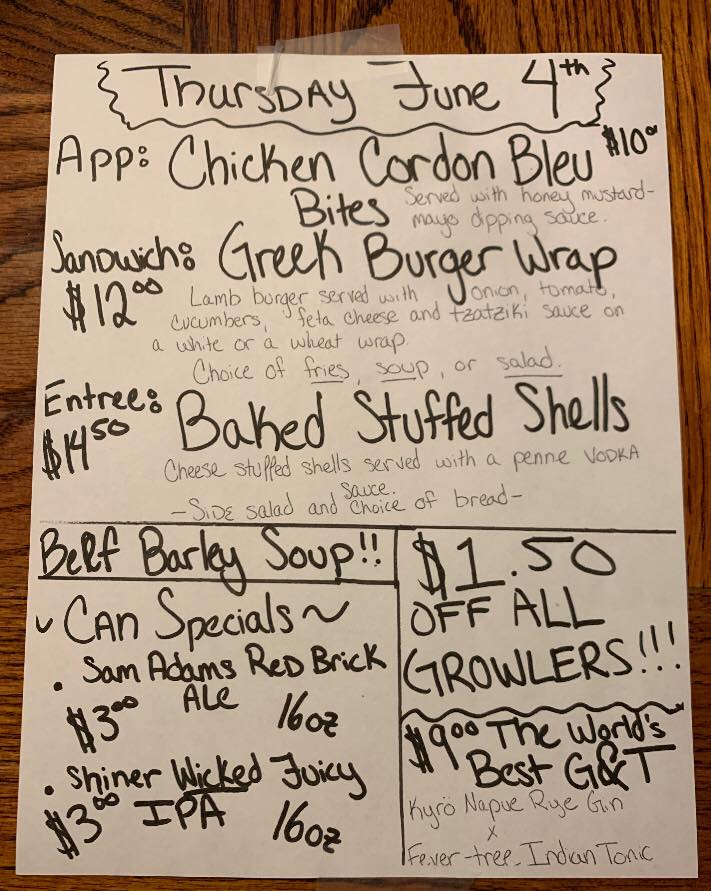 Thursday June 4th
App: Chicken Cordon Bleu $10⁰⁰
Bites Served with honey mustard-
mayo dipping sauce.
Sandwich: Greek Burger Wrap
$12⁰⁰ Lamb burger served with onion, tomato,
cucumbers, feta cheese and tzatziki sauce on
a white or a wheat wrap.
Choice of fries, soup, or salad.
Entree: Baked Stuffed Shells
$14⁵⁰
Cheese stuffed shells served with a penne VODKA
sauce.
-Side salad and choice of bread-
Beef Barley Soup!!
~ Can Specials ~
. Sam Adams Red Brick
Ale
$3⁰⁰ 16oz
. Shiner Wicked Juicy
$3⁰⁰ IPA 16oz
$1.50
OFF ALL
GROWLERS!!!
$9⁰⁰ The World's
Best G&T
Kyrö Napue Rye Gin
x
Fever-tree Indian Tonic